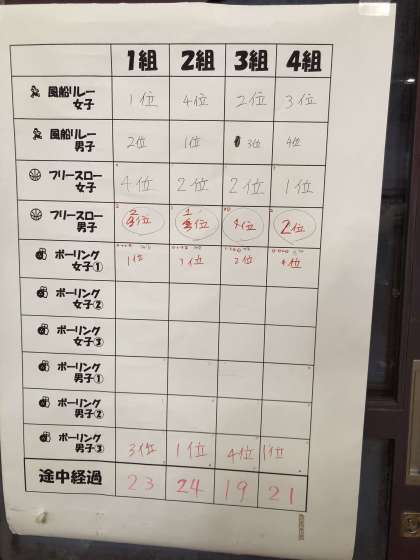 1組 2組 3組 4組
風船リレー 女子 1位 4位 2位 3位
風船リレー 男子 2位 1位 3位 4位
フリースロー 女子 4位 2位 2位 1位
フリースロー 男子 位 位 4位 2位
ボーリング 女子① 1位 位 2位 4位
ボーリング 女子②
ボーリング 女子③
ボーリング 男子①
ボーリング 男子②
ボーリング 男子③ 3位 1位 4位 1位
途中経過 23 24 19 21